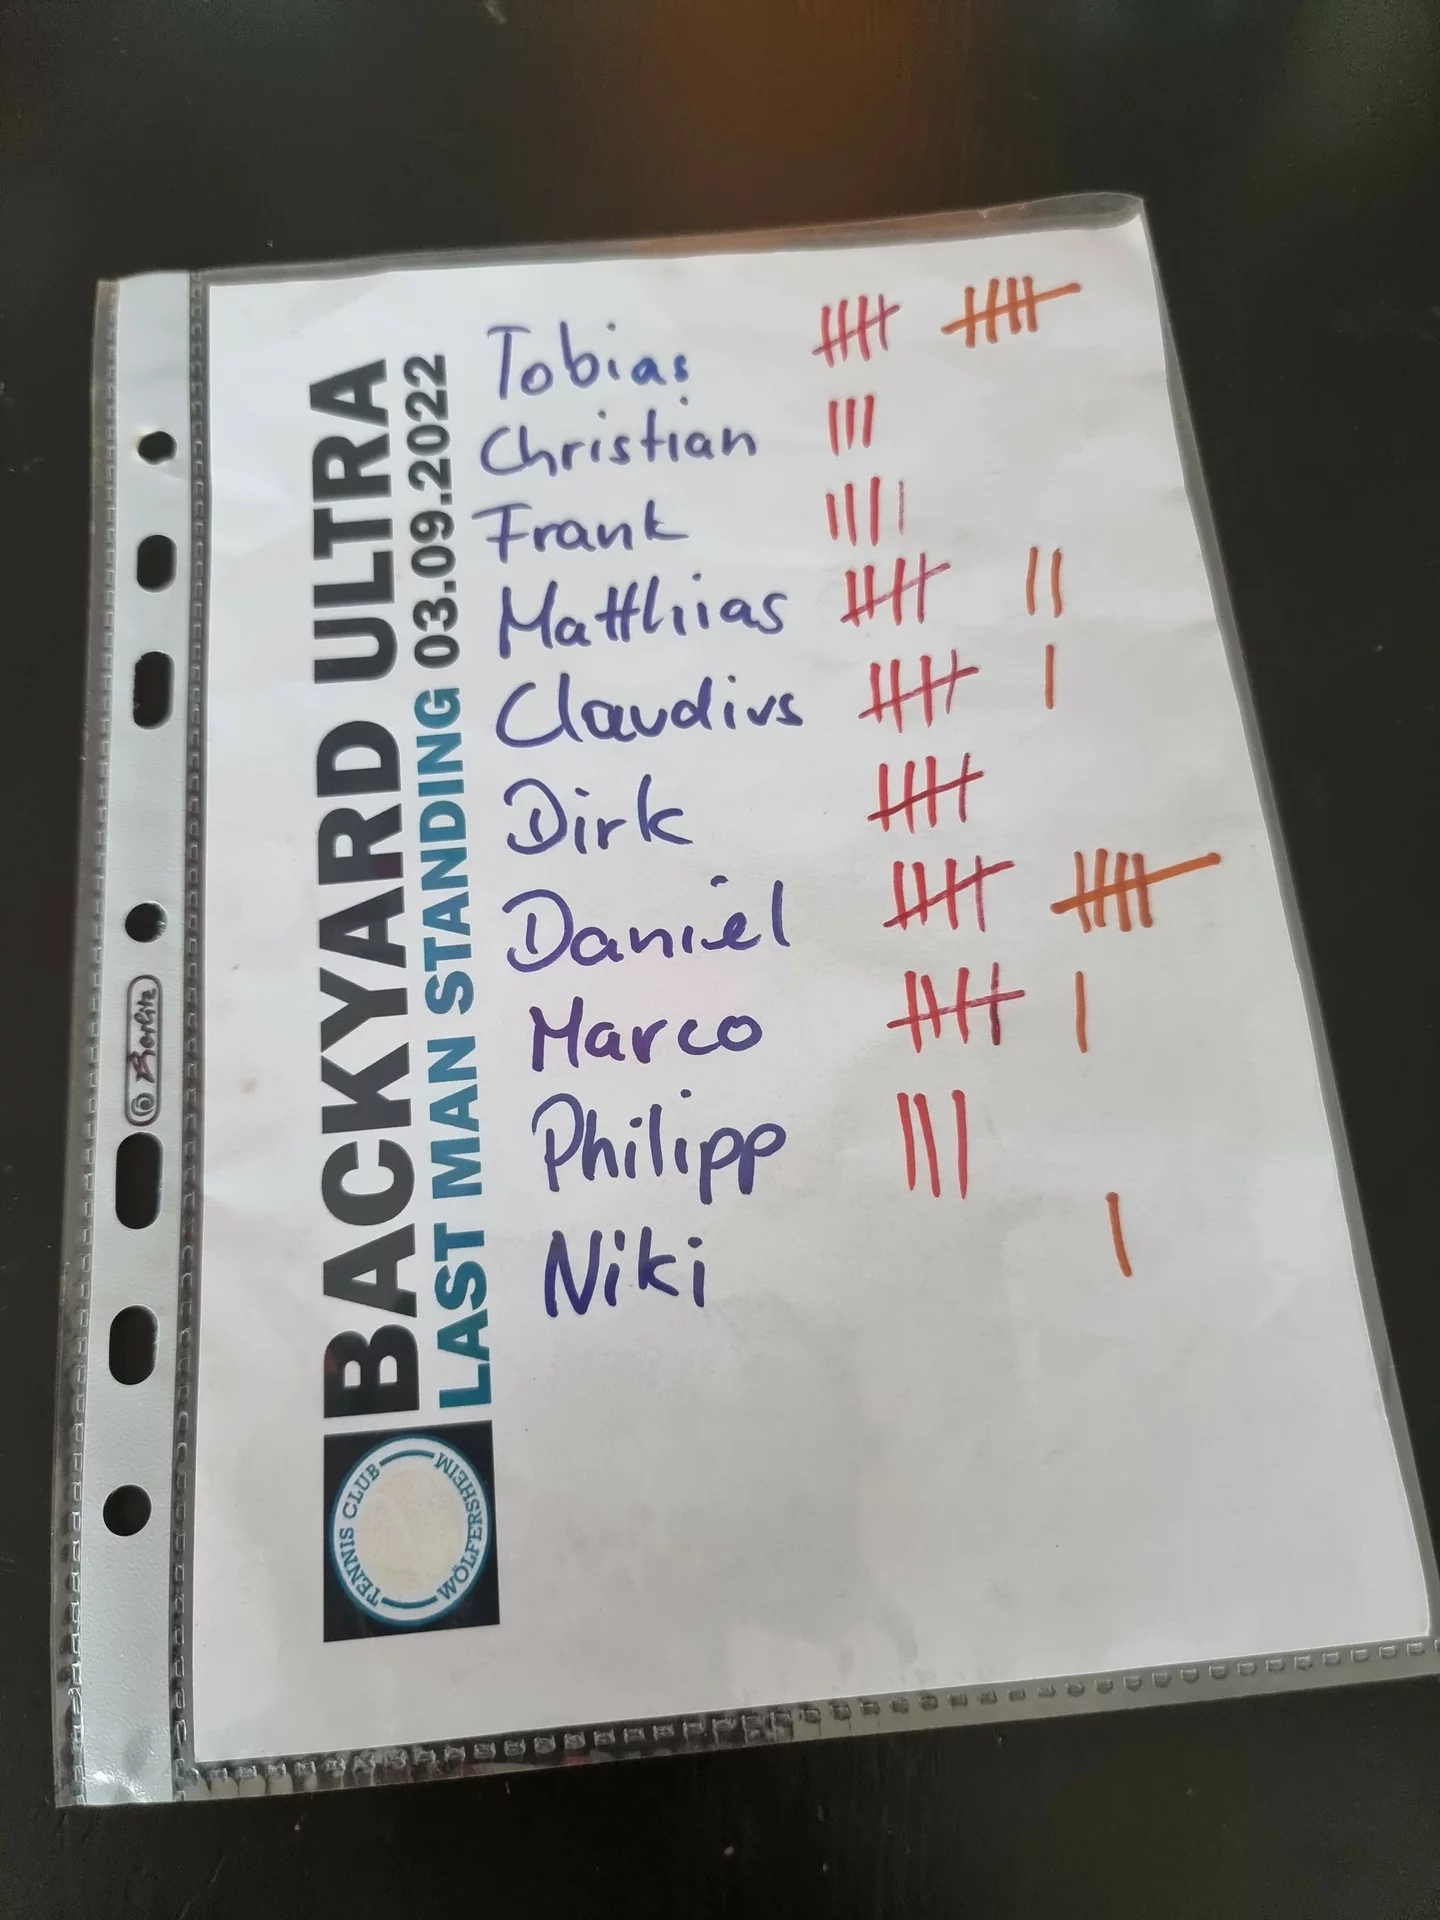 BACKYARD ULTRA
LAST MAN STANDING 03.09.2022
TENNIS CLUB
WÖLFERSHEIM
Berlitz
Tobias
Christian
Frank
Matthias
Claudius
Dirk
Daniel
Marco
Philipp
Niki